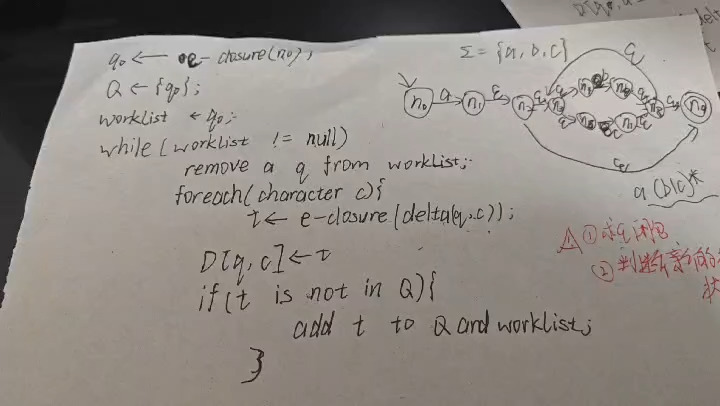 q0 ← e-closure(n0);
Q ← {q0};
worklist ← q0;
while(worklist != null)
remove a q from worklist;
foreach(character c){
t ← e-closure(delta(q,c));
D[q,c] ← t
if(t is not in Q){
add t to Q and worklist;
}
Σ = {a,b,c}
n0 a n1 ε n2 ε n3
n9
a(b|c)*
① 求ε闭包
② 判断新的